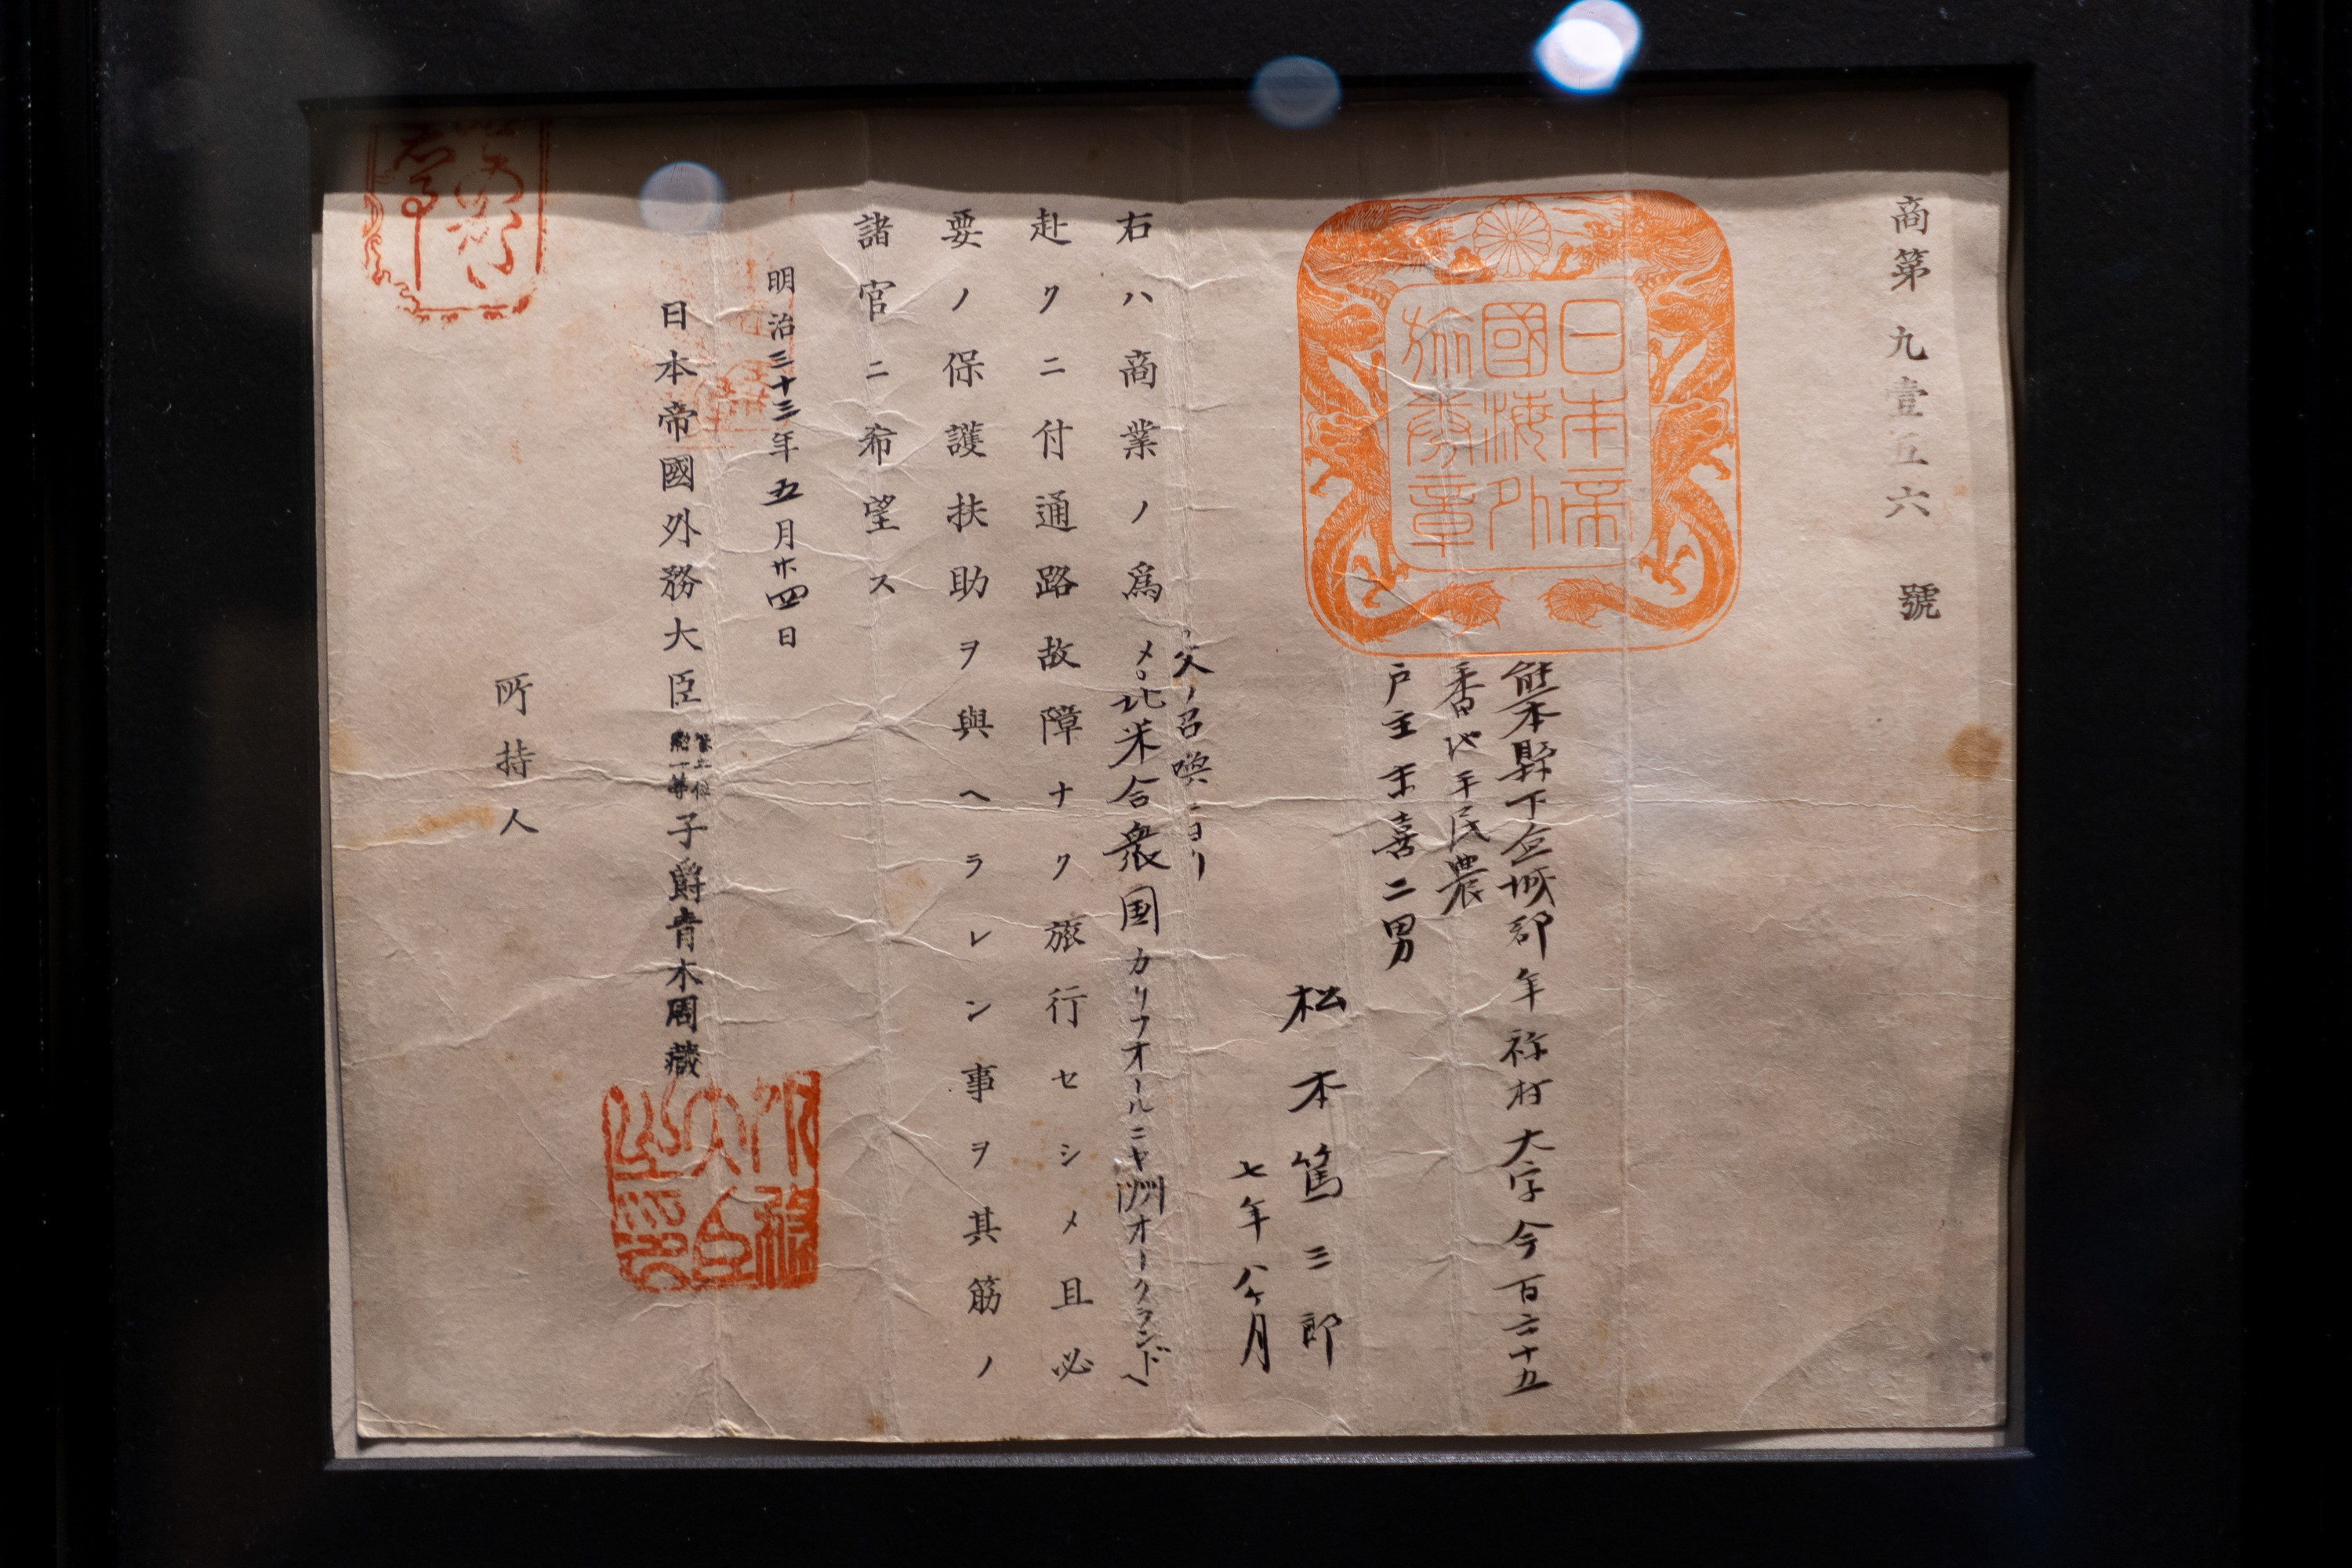 商第九壹五六號
日本帝
國海外
旅券章
熊本縣下益城郡年祢村大字今百六十五
番地平民農
戸主末喜二男
松本篤三郎
七年八ケ月
父ノ召喚ニヨリ
右ハ商業ノ爲メ北米合衆国カリフオールニヤ洲オークランドヘ
赴クニ付通路故障ナク旅行セシメ且必
要ノ保護扶助ヲ與ヘラレン事ヲ其筋ノ
諸官ニ希望ス
明治三十三年五月廿四日
日本帝國外務大臣
勲一等
子爵青木周藏
外務
大臣
之印
所持人